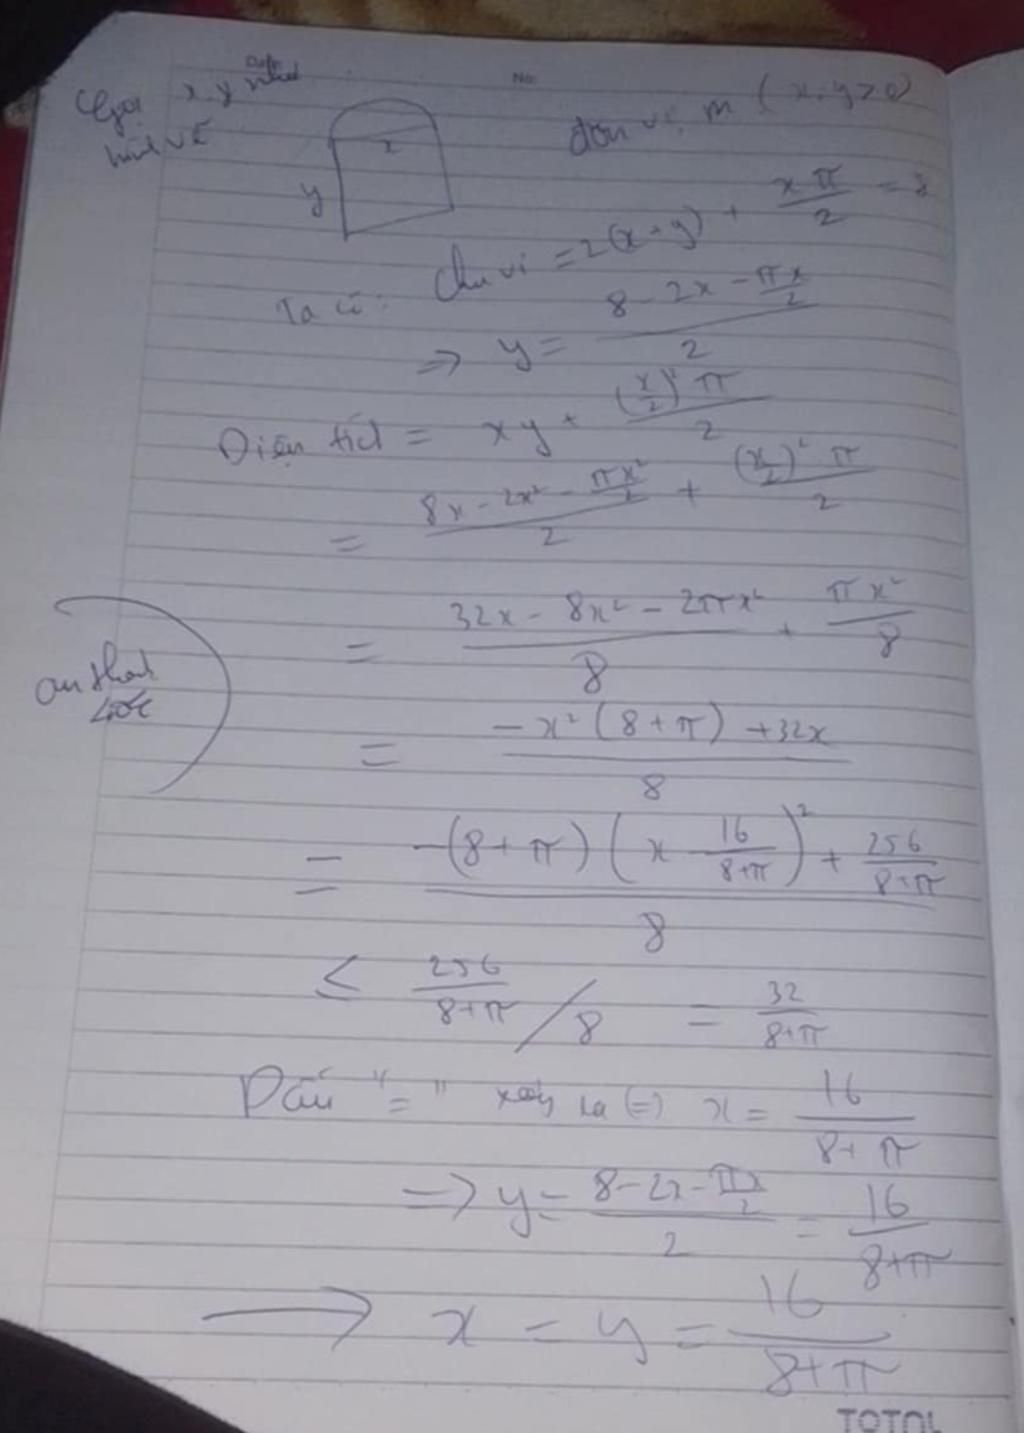 Date No.
Gọi x, y như đơn vị m (x, y > 0)
hình vẽ
x
y
Ta có: Chu vi = 2(x+y) + xπ/2 = 8
=> y = (8 - 2x - πx/2)/2
Diện tích = xy + ((x/2)² π)/2
= (8x - 2x² - πx²/2)/2 + ((x/2)² π)/2
= (32x - 8x² - 2πx²)/8 + πx²/8
= (-x²(8+π) + 32x)/8
= (-(8+π)(x - 16/(8+π))² + 256/(8+π))/8
≤ 256/(8+π) / 8 = 32/(8+π)
Dấu "=" xảy ra (=) x = 16/(8+π)
=> y = (8-2x-πx/2)/2 = 16/(8+π)
→ x = y = 16/(8+π)
TOTAL